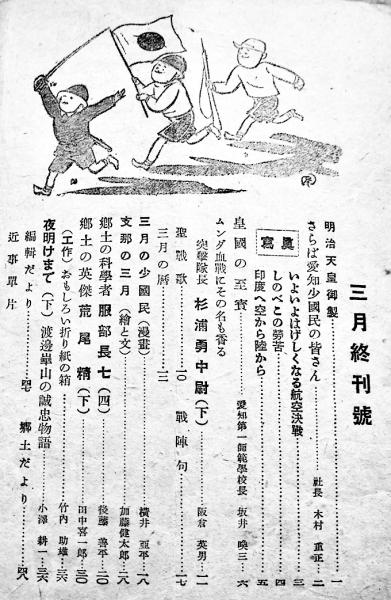 三月終刊號
明治天皇御製……一
さらば愛知少國民の皆さん……社長 木村重正…二
寫眞
いよいよはげしくなる航空決戰……三
しのべこの勞苦……四
印度へ空から陸から……五
皇國の至寳……愛知第一師範學校長 坂井喚三…六
ムンダ血戰にその名も香る
突擊隊長 杉浦勇中尉(下)……阪倉英男…一一
聖戰歌……一〇 戰陣句……一七
三月の曆……一二
三月の少國民(漫畫)……橫井亜平…一八
支那の三月(繪と文)……加藤健太郎…二八
鄕土の科學者 服部長七(四)……後藤善平…二〇
鄕土の英傑 荒尾精(下)……田中喜一郎…三〇
(工作)おもしろい折り紙の箱……竹內助雄…三六
夜明けまで(下)渡邊崋山の誠忠物語……小澤耕一…三六
編輯だより……四七 鄕土だより……四八
近事單片